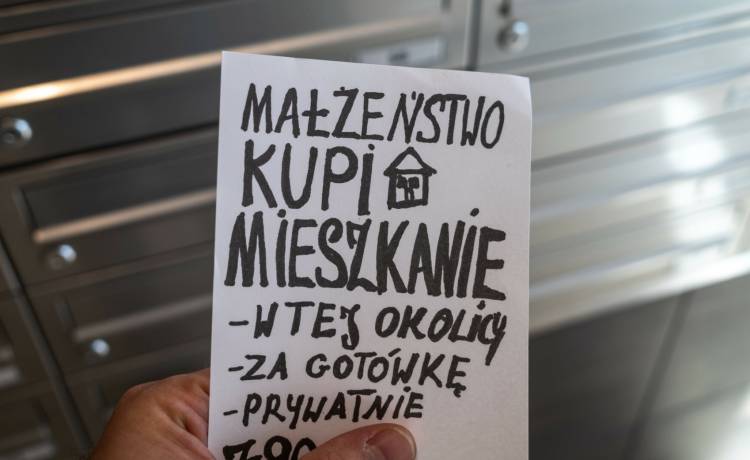 MAŁŻEŃSTWO
KUPI
MIESZKANIE
-W TEJ OKOLICY
-ZA GOTÓWKĘ
-PRYWATNIE